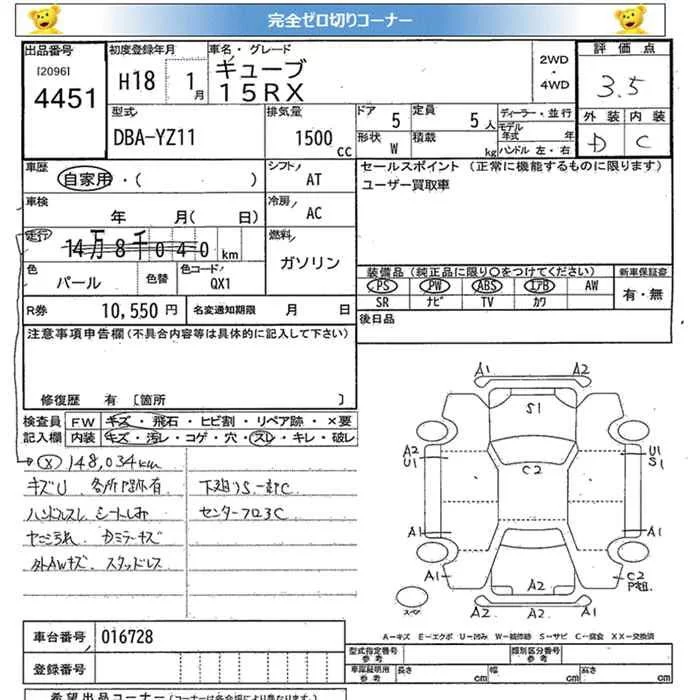 完全ゼロ切りコーナー
出品番号 初度登録年月 車名・グレード 2WD・4WD 評価点
[2096]
4451 H18 1月 キューブ 15RX 3.5
型式 排気量 ドア 定員 ディーラー・並行 外装 内装
DBA-YZ11 1500cc 5 5人 モデル年式 年 D C
形状 積載 ハンドル 左・右
W kg
車歴 シフト セールスポイント (正常に機能するものに限ります)
自家用・( ) AT ユーザー買取車
車検 冷房
年 月( 日) AC
走行 燃料
14万8千040km ガソリン
色 色替 色コード 装備品(純正品に限り○をつけてください) 新車保証書
パール QX1 PS PW ABS エアB AW 有・無
SR ナビ TV カワ
R券 10,550円 名変通知期限 月 日 後日品
注意事項申告欄(不具合内容等は具体的に記入して下さい)
修復歴 有 [箇所 ]
検査員 FW キズ・飛石・ヒビ割・リペア跡・×要
記入欄 内装 キズ・汚レ・コゲ・穴・スレ・キレ・破レ
ⓧ 148,034km
キズU 各所 有 下廻りS一部C
ハンドルスレ シートしみ センターフロアC
キズ
外AWキズ スタッドレス
A1 A1
S1
C2
A2
U1
U1
S1
A1 A1
A1 A2 C2
P粗
A2 A2 A2
スペア
A-キズ E-エクボ U-凹み W-補修跡 S-サビ C-腐食 XX-交換済
車台番号 016728
型式指定番号 参考 類別区分番号 参考
登録番号
車庫証明用 参考 長さ cm 幅 cm 高さ cm
希望出品コーナー(コーナーは各会場により異なります。)